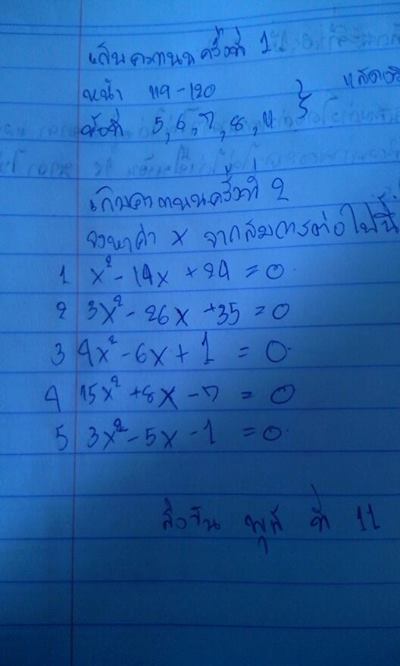 เก็บคะแนนครั้งที่ 1
หน้า 119-120
ข้อที่ 5, 6, 7, 8, 4
เก็บคะแนนครั้งที่ 2
จงหาค่า x จากสมการต่อไปนี้
1 x² - 14x + 24 = 0
2 3x² - 26x + 35 = 0
3 4x² - 6x + 1 = 0
4 15x² + 8x - 7 = 0
5 3x² - 5x - 1 = 0
ส่งวัน พุธ ที่ 11